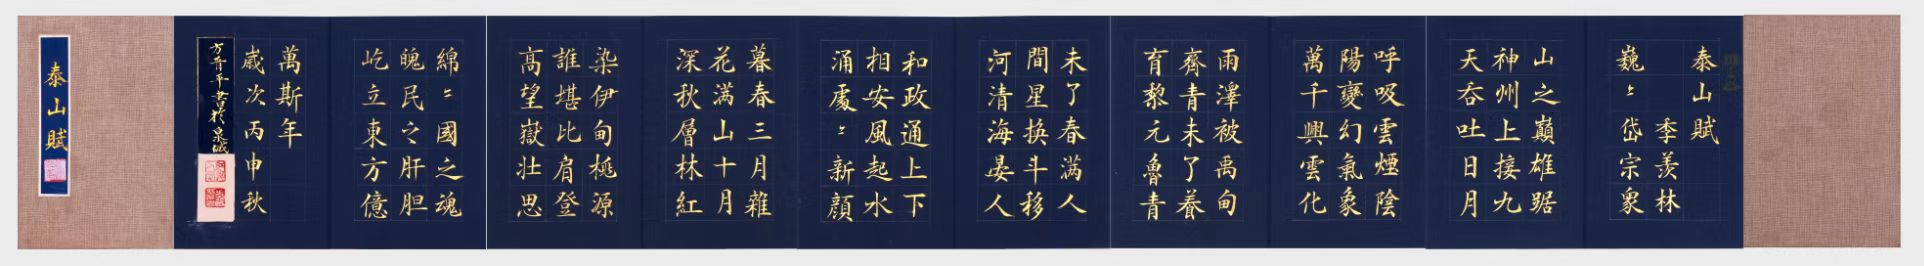 泰山賦
季羡林
巍〻岱宗衆
山之巔雄踞
神州上接九
天吞吐日月
呼吸雲煙陰
陽變幻氣象
萬千興雲化
雨澤被禹甸
齊青未了養
育黎元魯青
未了春满人
間星换斗移
河清海晏人
和政通上下
相安風起水
涌處〻新顔
暮春三月雜
花满山十月
深秋層林紅
染伊甸桃源
誰堪比肩登
高望嶽壮思
綿〻國之魂
魄民之肝胆
屹立東方億
萬斯年
歲次丙申秋
方晋平書於泉城
泰山賦